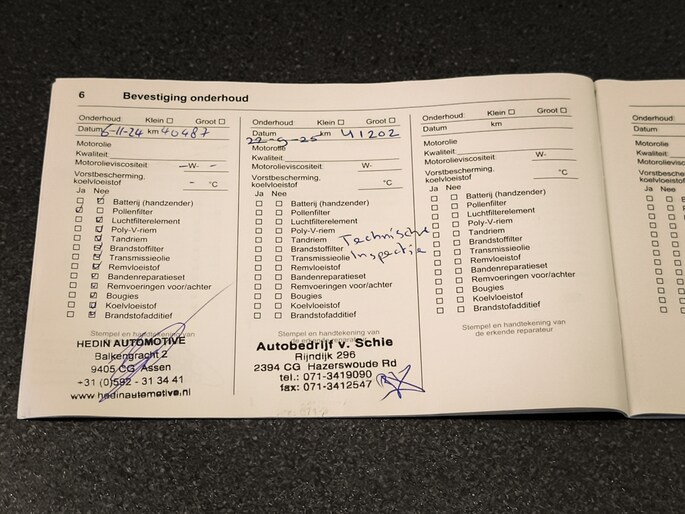 6 Bevestiging onderhoud
Onderhoud: Klein Groot
Datum 6-11-24 km 40487
Motorolie
Kwaliteit:
Motorolieviscositeit: - W- -
Vorstbescherming.
koelvloeistof - °C
Ja Nee
Batterij (handzender)
Pollenfilter
Luchtfilterelement
Poly-V-riem
Tandriem
Brandstoffilter
Transmissieolie
Remvloeistof
Bandenreparatieset
Remvoeringen voor/achter
Bougies
Koelvloeistof
Brandstofadditief
Stempel en handtekening van
HEDIN AUTOMOTIVE
Balkengracht 2
9405 CG Assen
+31 (0)592 - 31 34 41
www.hedinautomotive.nl
Onderhoud: Klein Groot
Datum 22-9-25 km 41202
Motorolie
Kwaliteit:
Motorolieviscositeit: W-
Vorstbescherming.
koelvloeistof °C
Ja Nee
Batterij (handzender)
Pollenfilter
Luchtfilterelement
Poly-V-riem
Tandriem Technische
Brandstoffilter
Transmissieolie Inspectie
Remvloeistof
Bandenreparatieset
Remvoeringen voor/achter
Bougies
Koelvloeistof
Brandstofadditief
Stempel en handtekening van
Autobedrijf v. Schie
Rijndijk 296
2394 CG Hazerswoude Rd
tel.: 071-3419090
fax: 071-3412547
Onderhoud: Klein Groot
Datum km
Motorolie
Kwaliteit:
Motorolieviscositeit: W-
Vorstbescherming.
koelvloeistof °C
Ja Nee
Batterij (handzender)
Pollenfilter
Luchtfilterelement
Poly-V-riem
Tandriem
Brandstoffilter
Transmissieolie
Remvloeistof
Bandenreparatieset
Remvoeringen voor/achter
Bougies
Koelvloeistof
Brandstofadditief
Stempel en handtekening van
de erkende reparateur
Onderhoud:
Datum
Motorolie
Kwaliteit:
Ja Nee